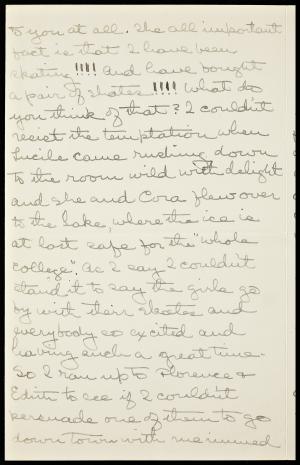 to you at all. The all important
fact is that I have been
skating!!!! And have bought
a pair of skates!!!! What do
you think of that? I couldn't
resist the temptation when
Lucile came rushing down
to the room wild with delight
and she and Cora flew over
to the lake, where the ice is
at last safe for the "whole
college". As I say I couldn't
stand it to say the girls go
by with their skates and
everybody so excited and
having such a great time.
So I ran up to Florence &
Edith to see if I couldn't
persuade one of them to go
down town with me